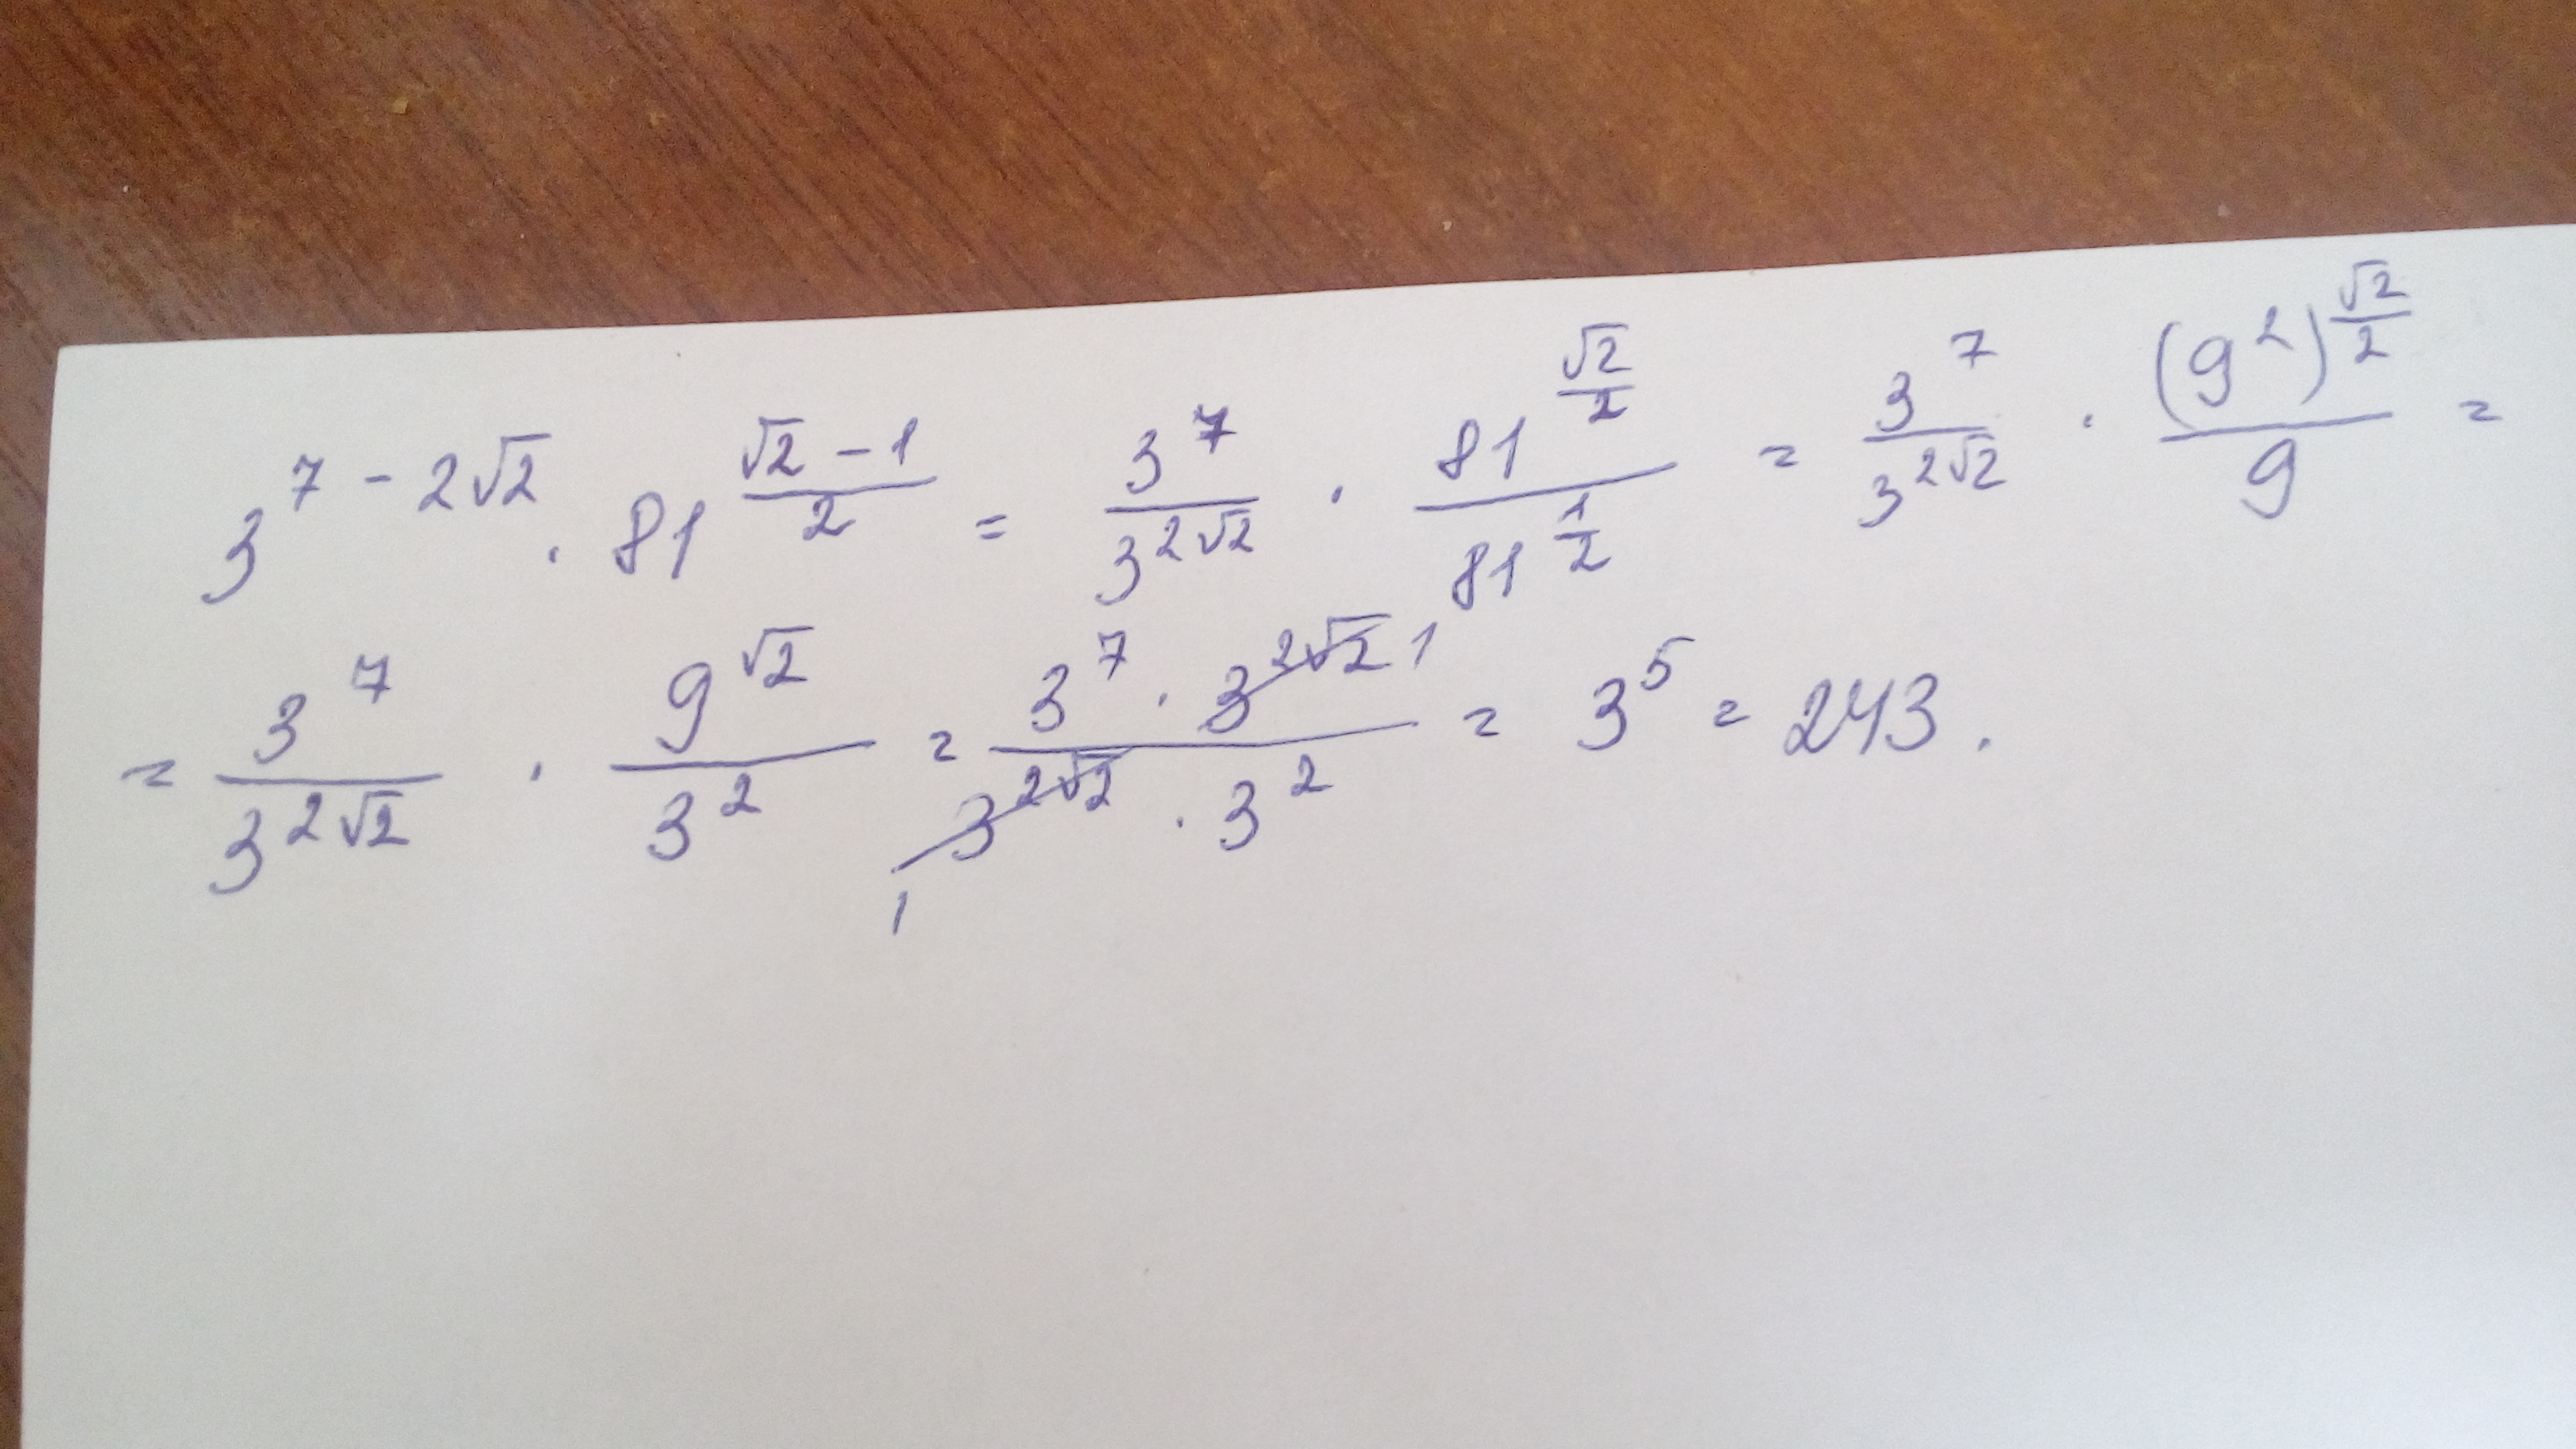 3^{7-2√2} · 81^{\frac{√2-1}{2}} = \frac{3^7}{3^{2√2}} · \frac{81^{\frac{√2}{2}}}{81^{\frac{1}{2}}} = \frac{3^7}{3^{2√2}} · \frac{(9^2)^{\frac{√2}{2}}}{9} =
= \frac{3^7}{3^{2√2}} · \frac{9^{√2}}{3^2} = \frac{3^7 · 3^{2√2} 1}{1 3^{2√2} · 3^2} = 3^5 = 243.